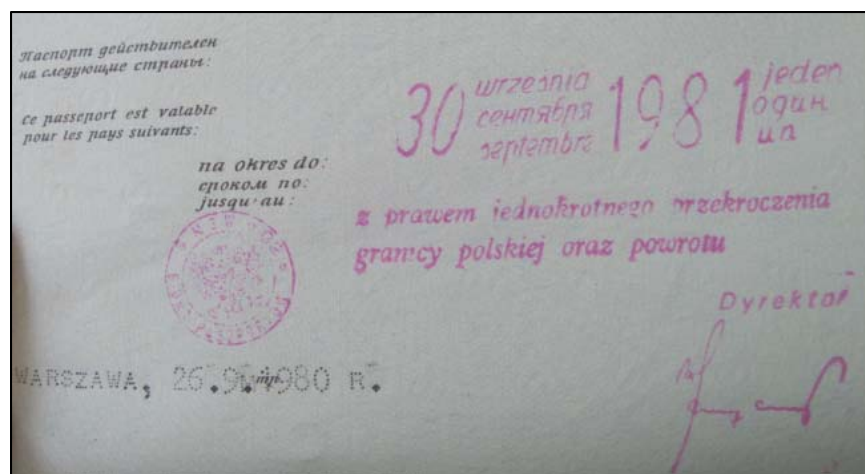 Паспорт действителен
на следующие страны:
ce passeport est valable
pour les pays suivants:
na okres do:
сроком по:
jusqu'au:
30 września 1981 jeden
сентября один
septembre un
z prawem jednokrotnego przekroczenia
granicy polskiej oraz powrotu
Dyrektor
WARSZAWA, 26.9.1980 R.